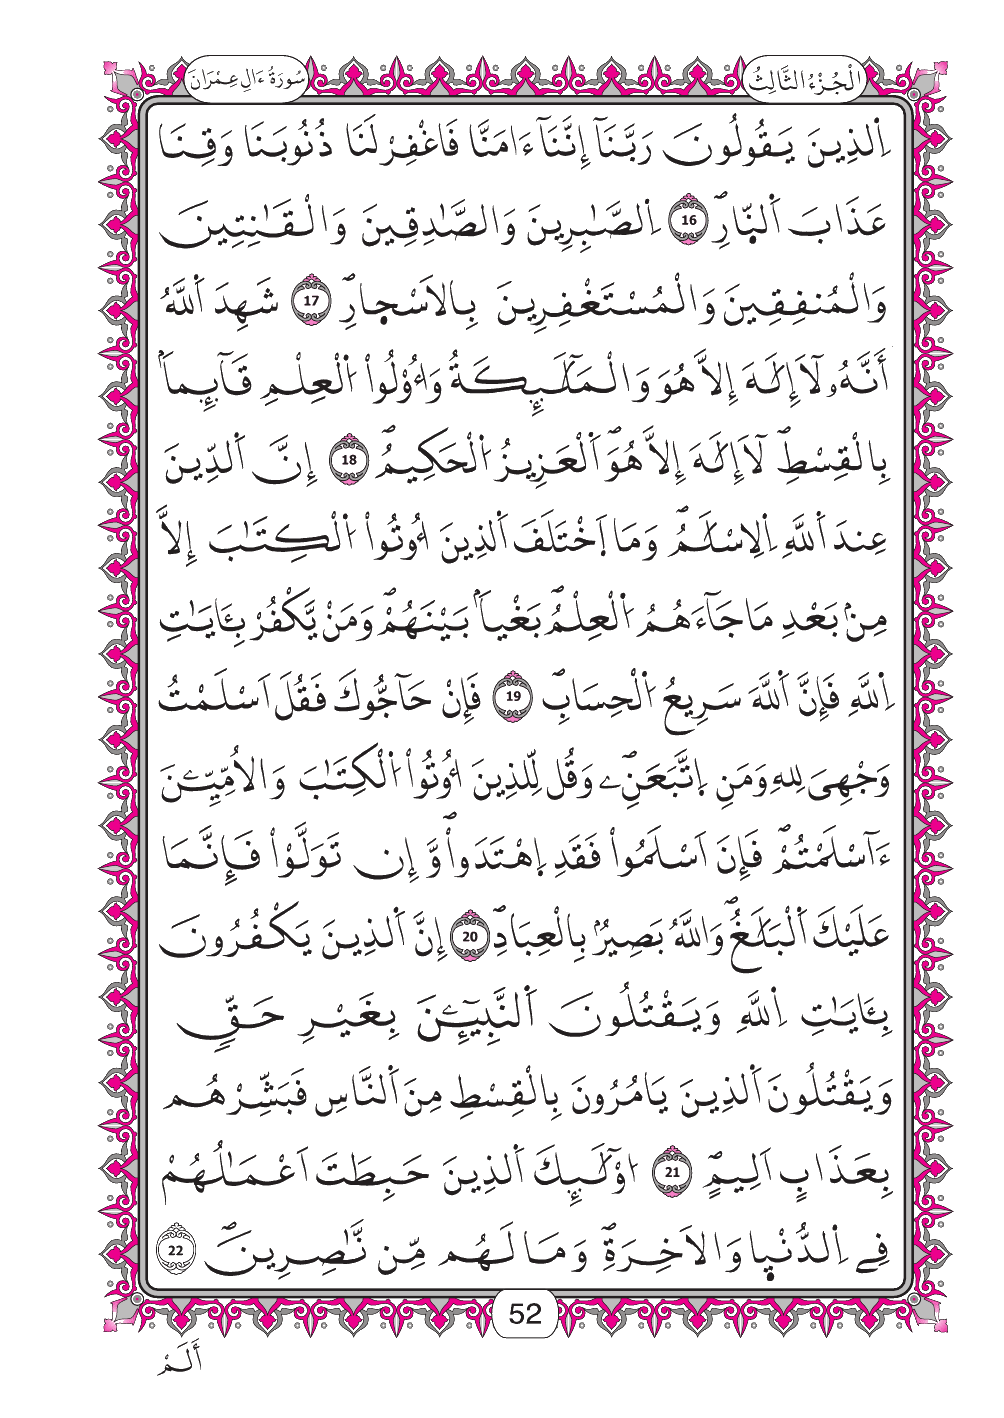 الْجُزْءُ الثَّالِثُ
سُورَةُ ءَالِ عِمْرَانَ
اِ۬لذِينَ يَقُولُونَ رَبَّنَآ إِنَّنَآ ءَامَنَّا فَاغْفِرْ لَنَا ذُنُوبَنَا وَقِنَا
عَذَابَ اَ۬لنّ۪ارِۖ 16 اِ۬لصَّٰبِرِينَ وَالصَّٰدِقِينَ وَالْقَٰنِتِينَ
وَالْمُنفِقِينَ وَالْمُسْتَغْفِرِينَ بِالَاسْح۪ارِۖ 17 شَهِدَ اَ۬للَّهُ
أَنَّهُۥ لَآ إِلَٰهَ إِلَّا هُوَ وَالْمَلَٰٓئِكَةُ وَأُوْلُواْ اُ۬لْعِلْمِ قَآئِماَۢ
بِالْقِسْطِۖ لَآ إِلَٰهَ إِلَّا هُوَۖ اَ۬لْعَزِيزُ اُ۬لْحَكِيمُۖ 18 إِنَّ اَ۬لدِّينَ
عِندَ اَ۬للَّهِ اِ۬لِاسْلَٰمُۖ وَمَا اَ۪خْتَلَفَ اَ۬لذِينَ أُوتُواْ اُ۬لْكِتَٰبَ إِلَّا
مِنۢ بَعْدِ مَا جَآءَهُمُ اُ۬لْعِلْمُ بَغْياَۢ بَيْنَهُمْۖ وَمَنْ يَّكْفُرْ بِـَٔايَٰتِ
اِ۬للَّهِ فَإِنَّ اَ۬للَّهَ سَرِيعُ اُ۬لْحِسَابِۖ 19 فَإِنْ حَآجُّوكَ فَقُلَ اَسْلَمْتُ
وَجْهِيَ لِلهِ وَمَنِ اِ۪تَّبَعَنِۦۖ وَقُل لِّلذِينَ أُوتُواْ اُ۬لْكِتَٰبَ وَالُامِّيِّـۧنَ
ءَآسْلَمْتُمْۖ فَإِنَ اَسْلَمُواْ فَقَدِ اِ۪هْتَدَواْۖ وَّإِن تَوَلَّوْاْ فَإِنَّمَا
عَلَيْكَ اَ۬لْبَلَٰغُۖ وَاللَّهُ بَصِيرُۢ بِالْعِبَادِۖ 20 إِنَّ اَ۬لذِينَ يَكْفُرُونَ
بِـَٔايَٰتِ اِ۬للَّهِ وَيَقْتُلُونَ اَ۬لنَّبِيٓـِٕۧنَ بِغَيْرِ حَقّٖ
وَيَقْتُلُونَ اَ۬لذِينَ يَامُرُونَ بِالْقِسْطِ مِنَ اَ۬لنَّاسِ فَبَشِّرْهُم
بِعَذَابٍ اَلِيمٍۖ 21 اُوْلَٰٓئِكَ اَ۬لذِينَ حَبِطَتَ اَعْمَٰلُهُمْ
فِے اِ۬لدُّنْي۪ا وَالَاخِرَةِۖ وَمَا لَهُم مِّن نَّٰصِرِينَۖ 22
52
أَلَمْ